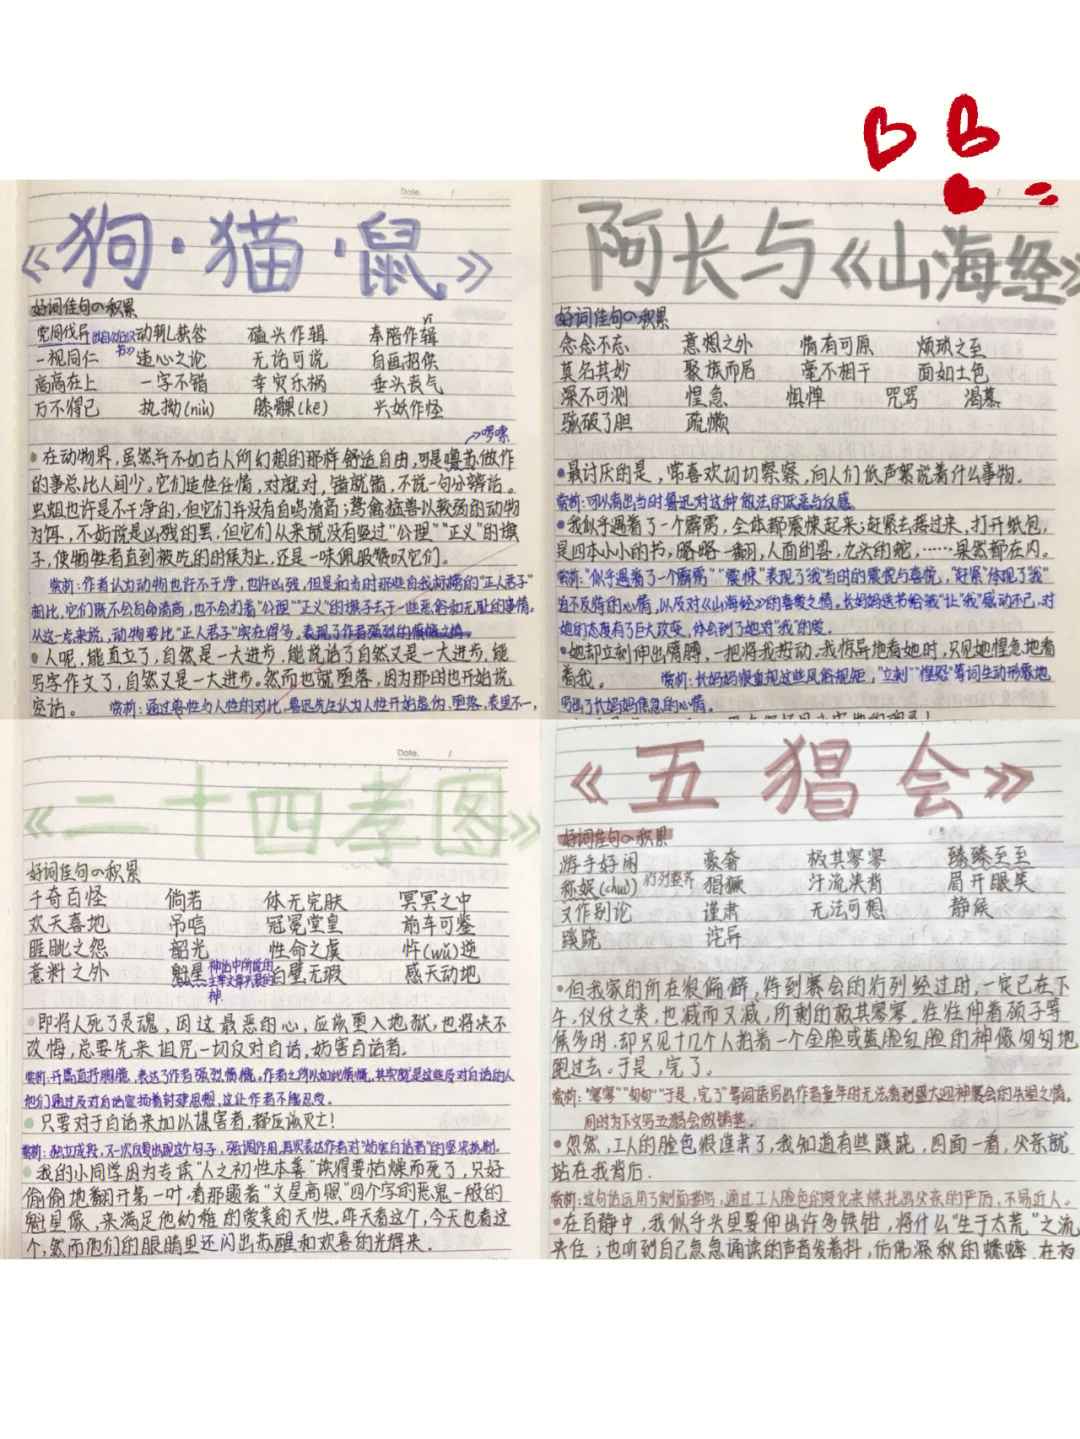 Date.
《狗·猫·鼠》
好词佳句の积累
党同伐异 出自《后汉书》 动辄获咎 磕头作辑 奉陪作辑 yī
一视同仁 违心之论 无话可说 自画招供
高高在上 一字不错 幸灾乐祸 垂头丧气
万不得已 执拗(niù) 膝髁(kē) 兴妖作怪
啰嗦
在动物界,虽然并不如古人所幻想的那样舒适自由,可是噜苏做作
的事总比人间少。它们适性任情,对就对,错就错,不说一句分辩话。
虫蛆也许是不干净的,但它们并没有自鸣清高;鸷禽猛兽以较弱的动物
为饵,不妨说是凶残的罢,但它们从来就没有竖过“公理”“正义”的旗
子,使牺牲者直到被吃的时候为止,还是一味佩服赞叹它们。
赏析:作者认为动物也许不干净,也许凶残,但是和当时那些自我标榜的“正人君子”
相比,它们既不会自命清高,也不会打着“公理”“正义”的旗子去干一些恶俗和无耻的事情。
从这一点来说,动物要比“正人君子”实在得多。表现了作者强烈的愤慨之情。
人呢,能直立了,自然是一大进步,能说话了自然又是一大进步,能
写字作文了,自然又是一大进步。然而也就堕落,因为那时也开始说
空话。 赏析:通过兽性与人性的对比,鲁迅先生认为人性开始虚伪、堕落,表里不一,
阿长与《山海经》
好词佳句の积累
念念不忘 意想之外 情有可原 烦琐之至
莫名其妙 聚族而居 毫不相干 面如土色
深不可测 惶急 惧惮 咒骂 渴慕
骇破了胆 疏懒
最讨厌的是,常喜欢切切察察,向人们低声絮说着什么事物。
赏析:可以看出当时鲁迅对这种做法的厌恶与反感。
我似乎遇着了一个霹雳,全体都震悚起来;赶紧去接过来,打开纸包,
是四本小小的书,略略一翻,人面的兽,九头的蛇,……果然都在内。
赏析:“似乎遇着了一个霹雳”“震悚”表现了“我”当时的震惊与喜悦,“赶紧”体现了“我”
迫不及待的心情,以及对《山海经》的喜爱之情。长妈妈送书给“我”让“我”感动不已,对
她的态度有了巨大改变,体会到了她对“我”的爱。
她却立刻伸出臂膊,一把将我按动。我惊异地看她时,只见她惶急地看
着我。 赏析:长妈妈很重视这些风俗规矩,“立刻”“惶恐”等词生动形象地
写出了长妈妈焦急的心情。
Date.
《二十四孝图》
好词佳句の积累
千奇百怪 倘若 体无完肤 冥冥之中
欢天喜地 吊唁 冠冕堂皇 前车可鉴
睚眦之怨 韶光 性命之虞 忤(wǔ)逆
意料之外 魁星 神话中所说的主宰文章兴衰的神. 白璧无瑕 感天动地
即将人死了灵魂,因这最恶的心,应该堕入地狱,也将决不
改悔,总要先来诅咒一切反对白话,妨害白话者.
赏析:开篇直抒胸臆,表达了作者强烈愤慨。作者之所以如此愤慨,其实就是这些反对白话的人
他们通过反对白话宣扬着封建思想,这让作者不能忍受。
只要对于白话来加以谋害者,都应该灭亡!
赏析:独立成段,不一次反复出现这个句子,强调作用,再次表达作者对“妨害白话者”的坚决抵制.
我的小同学因为专读“人之初性本善”读得要枯燥而死了,只好
偷偷地翻开第一叶,看那题着“文星高照”四个字的恶鬼一般的
魁星像,来满足他幼稚的爱美的天性。昨天看这个,今天也看这
个,然而他们的眼睛里还闪出苏醒和欢喜的光辉来.
《五猖会》
好词佳句の积累
游手好闲 豪奢 极其寥寥 臻臻至至
称娖(chuò) 行列整齐 猖獗 汗流浃背 眉开眼笑
又作别论 谨肃 无法可想 静候
蹊跷 诧异
但我家的所在很偏僻,待到赛会的行列经过时,一定已在下
午,仪仗之类,也减而又减,所剩的极其寥寥。往往伸着颈子等
候多时,却只见十几个人抬着一个金脸或蓝脸红脸的神像匆匆地
跑过去。于是,完了。
赏析:“寥寥”“匆匆”“于是,完了”等词语写出作者童年时无法看到盛大迎神赛会的失望之情。
同时为下文写五猖会做铺垫。
忽然,工人的脸色很谨肃了,我知道有些蹊跷,四面一看,父亲就
站在我背后.
赏析:这句话运用了侧面描写,通过工人脸色的变化来烘托出父亲的严厉、不易近人。
在百静中,我似乎头里要伸出许多铁钳,将什么“生于太荒”之流
夹住;也听到自己急急诵读的声音发着抖,仿佛深秋的蟋蟀,在夜